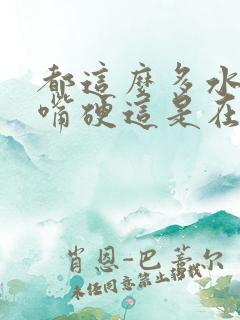 都這麼多水
嘴硬這是在
肖恩-巴蒂尔
未经同意禁止转载